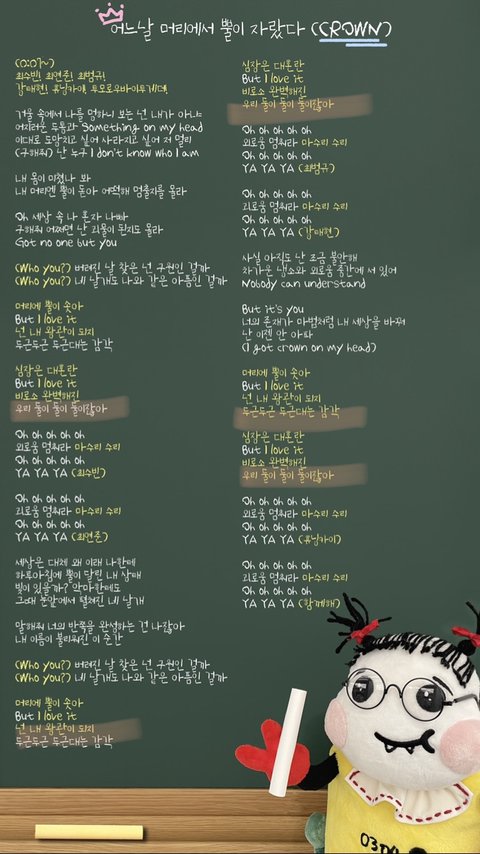 어느날 머리에서 뿔이 자랐다 (CROWN)
(0:07~)
최수빈! 최연준! 최범규!
강태현! 휴닝카이! 투모로우바이투게더!
거울 속에서 나를 멍하니 보는 넌 내가 아냐
어지러운 두통과 Something on my head
이대로 도망치고 싶어 사라지고 싶어 저 멀리
(구해줘) 난 누구 I don't know who I am
내 몸이 미쳤나 봐
내 머리엔 뿔이 돋아 어떡해 멈출지를 몰라
Oh 세상 속 나 혼자 나빠
구해줘 어쩌면 난 괴물이 된지도 몰라
Got no one but you
(Who you?) 버려진 날 찾은 넌 구원인 걸까
(Who you?) 네 날개도 나와 같은 아픔인 걸까
머리에 뿔이 솟아
But I love it
넌 내 왕관이 되지
두근두근 두근대는 감각
심장은 대혼란
But I love it
비로소 완벽해진
우리 둘이 둘이 둘이잖아
Oh oh oh oh oh
외로움 멈춰라 마수리 수리
Oh oh oh oh oh
YA YA YA (최수빈)
Oh oh oh oh oh
외로움 멈춰라 마수리 수리
Oh oh oh oh oh
YA YA YA (최연준)
세상은 대체 왜 이래 나한테
하루아침에 뿔이 달린 내 상태
빛이 있을까? 악마한테도
그때 눈앞에서 펼쳐진 네 날개
말해줘 너의 반쪽을 완성하는 건 나잖아
내 이름이 불리워진 이 순간
(Who you?) 버려진 날 찾은 넌 구원인 걸까
(Who you?) 네 날개도 나와 같은 아픔인 걸까
머리에 뿔이 솟아
But I love it
넌 내 왕관이 되지
두근두근 두근대는 감각
심장은 대혼란
But I love it
비로소 완벽해진
우리 둘이 둘이 둘이잖아
Oh oh oh oh oh
외로움 멈춰라 마수리 수리
Oh oh oh oh oh
YA YA YA (최범규)
Oh oh oh oh oh
외로움 멈춰라 마수리 수리
Oh oh oh oh oh
YA YA YA (강태현)
사실 아직도 난 조금 불안해
차가운 냉소와 외로움 중간에 서 있어
Nobody can understand
But it's you
너의 존재가 마법처럼 내 세상을 바꿔
난 이젠 안 아파
(I got crown on my head)
머리에 뿔이 솟아
But I love it
넌 내 왕관이 되지
두근두근 두근대는 감각
심장은 대혼란
But I love it
비로소 완벽해진
우리 둘이 둘이 둘이잖아
Oh oh oh oh oh
외로움 멈춰라 마수리 수리
Oh oh oh oh oh
YA YA YA (휴닝카이)
Oh oh oh oh oh
외로움 멈춰라 마수리 수리
Oh oh oh oh oh
YA YA YA (함께해)